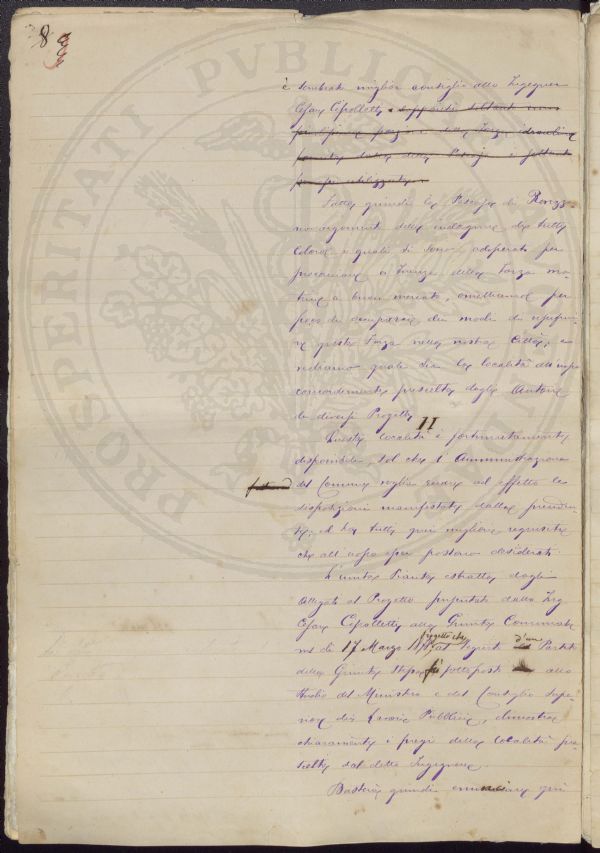 8
è sembrato miglior consiglio allo Ingegner
Cesare Capolletti
Fatta quindi la Pescaja di Rovezz
no argomento delle indagini di tutti
Coloro i quali si sono adoperati per
procacciare a Firenze della forza mo-
trice a buon mercato, omettiamo per
poco di occuparci dei modi di usufrui-
re questa forza nella nostra Città, e
vediamo quale sia la località
concordemente prescelta dagli Autori
de diversi Progetti
II
Questa località è fortunatamente
disponibile, sol che l' Amministrazione
del Comune voglia recare ad effetto le
disposizioni manifestate dalla
ed ha tutti quei migliori requisiti
che all' uopo si possono desiderare.
L'unita Pianta estratta dagli
Allegati al Progetto presentato dallo Ing
Cesare Capolletti alla Giunta Comunale
di 17 Marzo progetto che seguito d'un Partito
della Giunta stessa fù sottoposto allo
studio del Ministro e del Consiglio Supe-
riore dei Lavori Pubblici, dimostra
chiaramente i pregi della località pre
scelta dal detto Ingegnere.
Basterà quindi enunciare qui
PROSPERITATI PVBLICAE